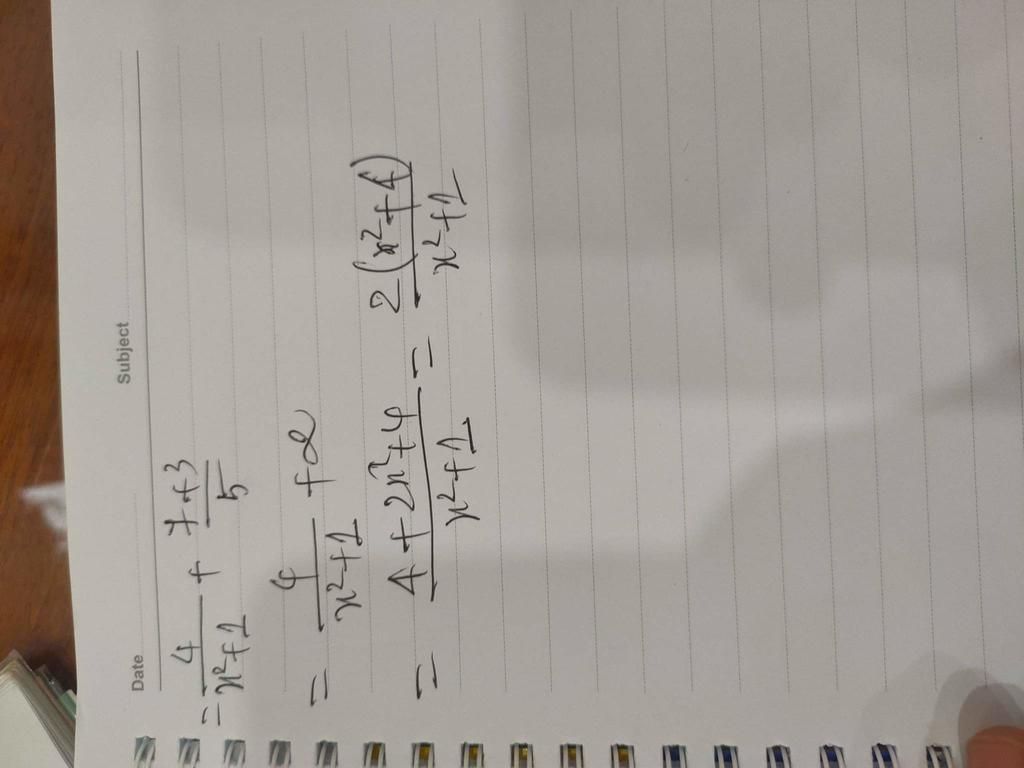 Date Subject
= 4/(x²+1) + (7+3)/5
= 4/(x²+1) + 2
= (4+2x²+4)/(x²+1) = 2(x²+4)/(x²+1)